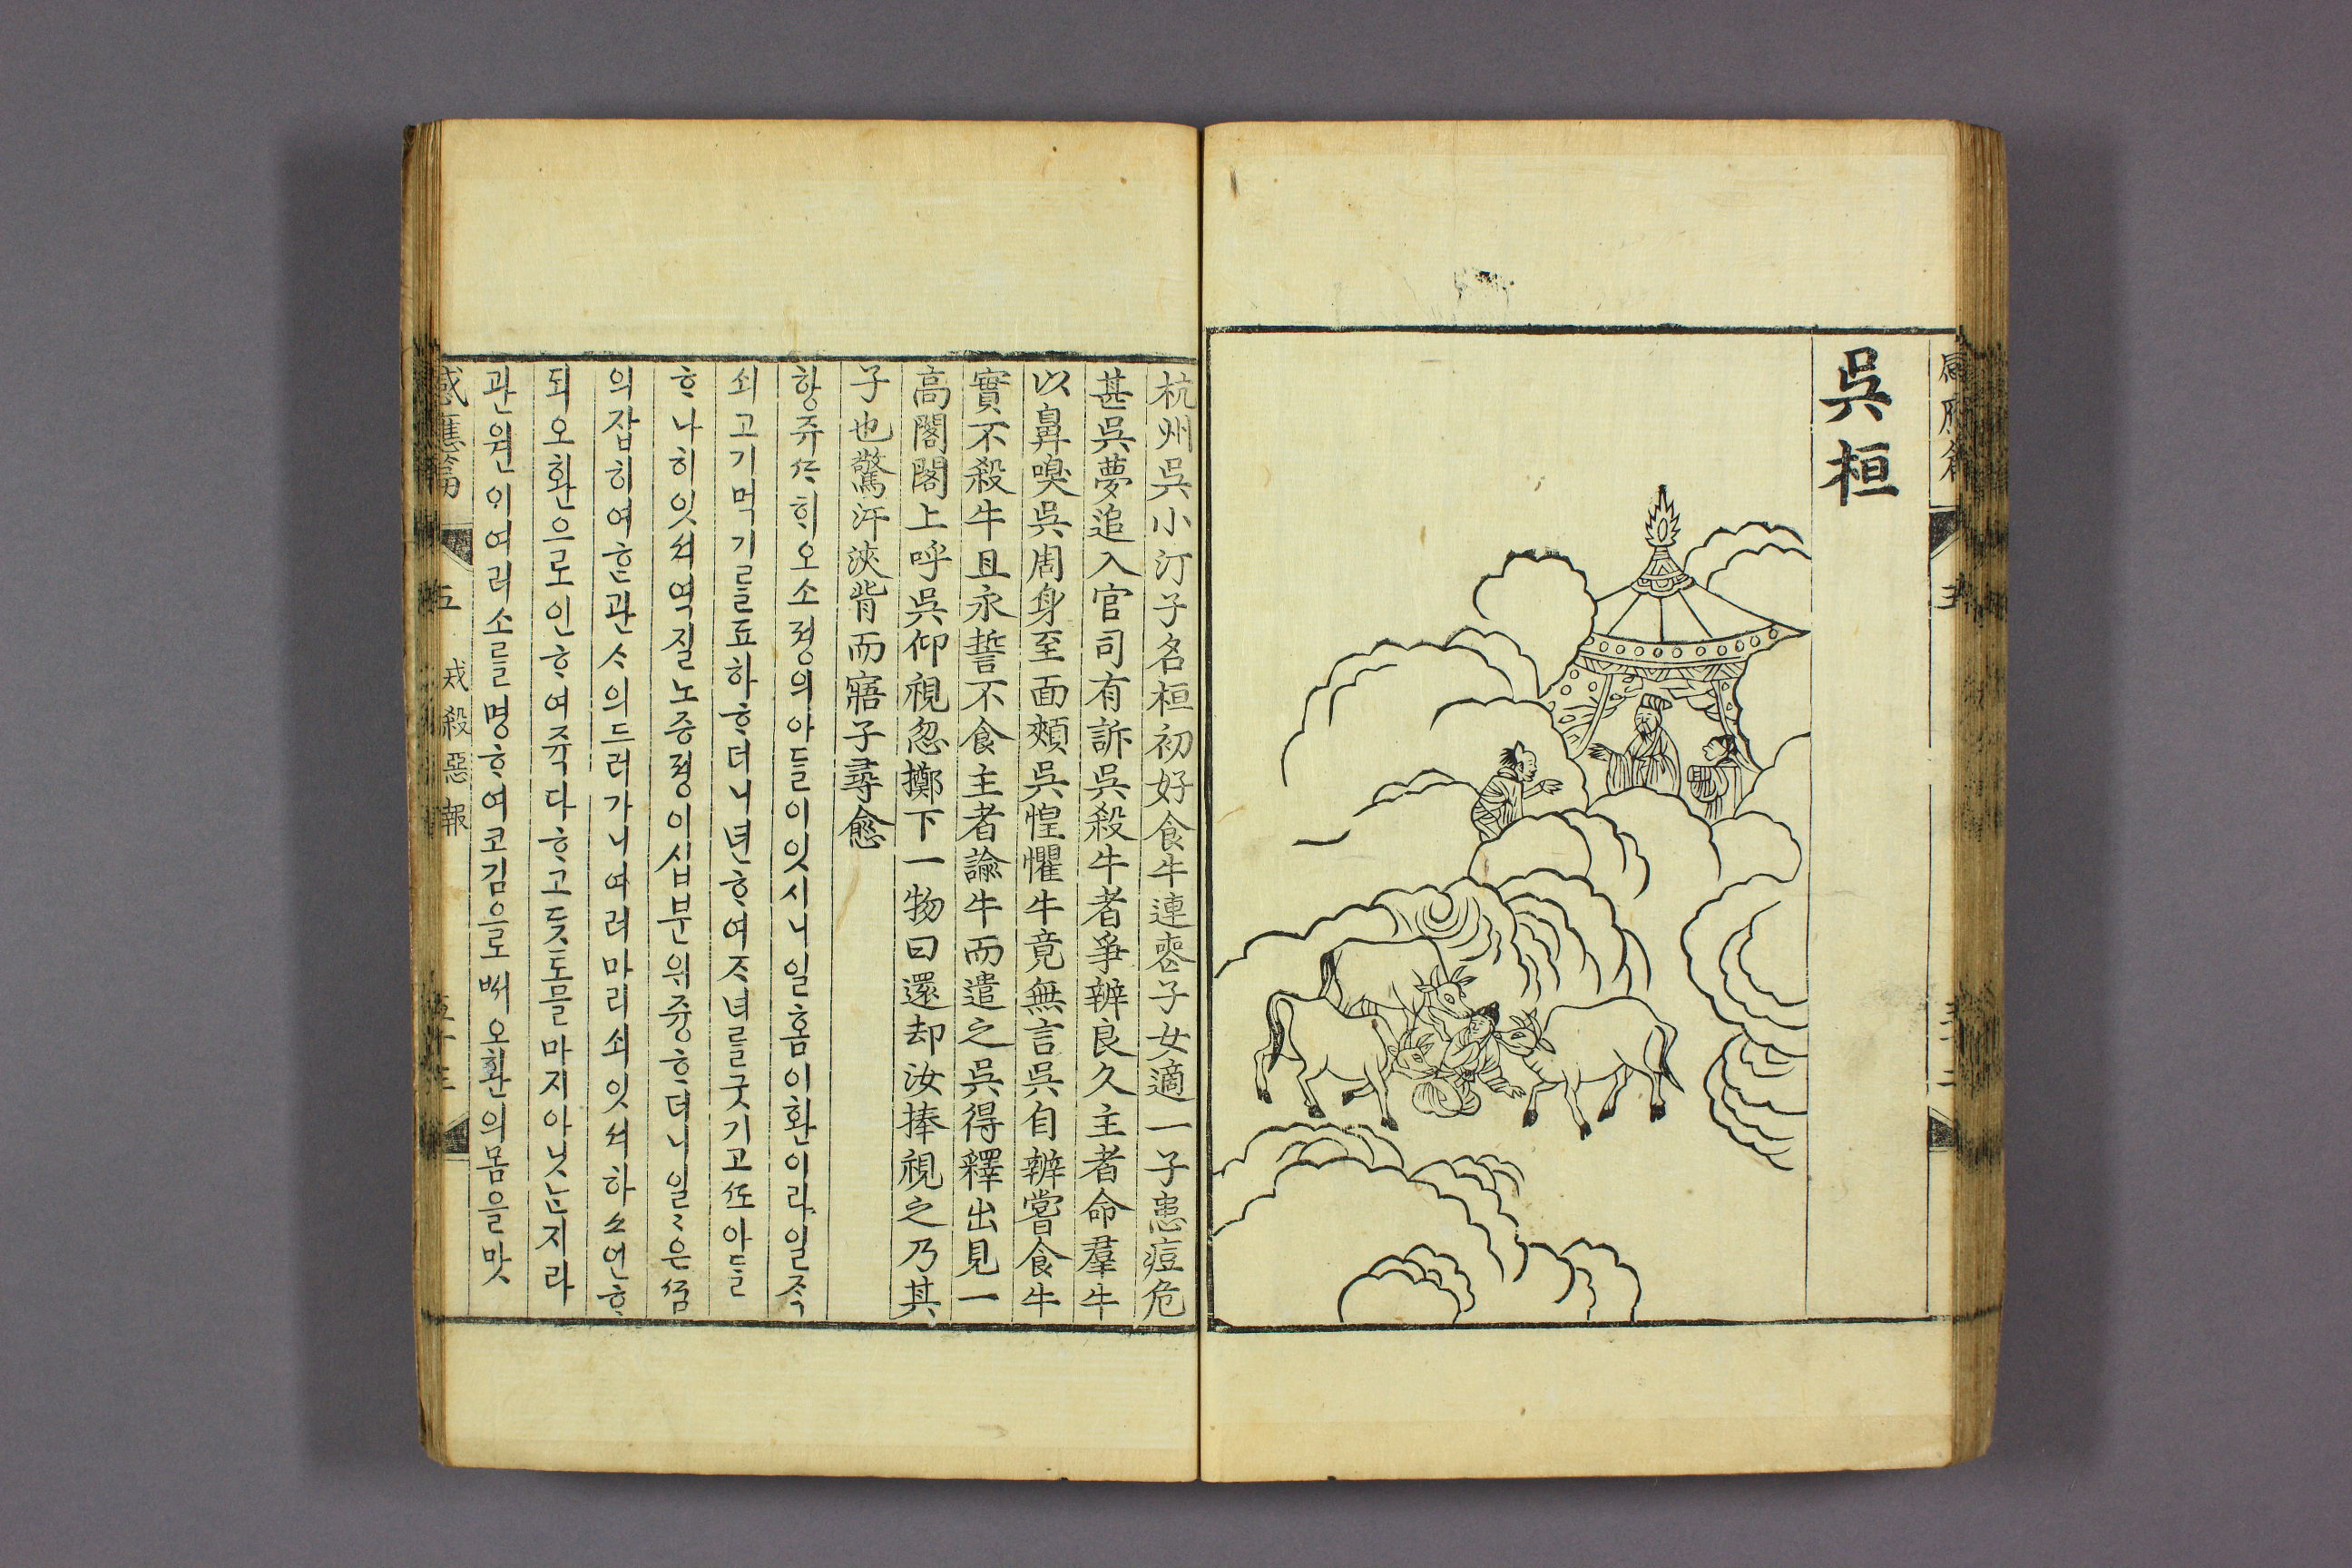 吳桓
杭州吳小汀子名桓初好食牛連喪子女適一子患痘危
甚吳夢追入官司有訴吳殺牛者爭辨良久主者命羣牛
以鼻嗅吳周身至面頰吳惶懼牛竟無言吳自辨嘗食牛
實不殺牛且永誓不食主者諭牛而遣之吳得釋出見一
高閣閣上呼吳仰視忽擲下一物曰還却汝捧視之乃其
子也驚汗浹背而寤子尋愈
항쥬ᄯᅡ희오소졍의아들이잇시니일홈이환이라일즉
쇠고기먹기를됴하ᄒᆞ더니년ᄒᆞ여ᄌᆞ녀를굿기고ᄯᅩ아들
ᄒᆞ나히잇셔역질노증졍이십분위즁ᄒᆞ더니일〻은ᄭᅮᆷ
의잡히여ᄒᆞᆫ관ᄉᆞ의드러가니여러마리쇠잇셔하소연ᄒᆞ
되오환으로인ᄒᆞ여쥭다ᄒᆞ고듯토믈마지아닛ᄂᆞᆫ지라
관원이여러소를명ᄒᆞ여코김을도ᄡᅥ오환의몸을맛
感應篇 五 戒殺惡報